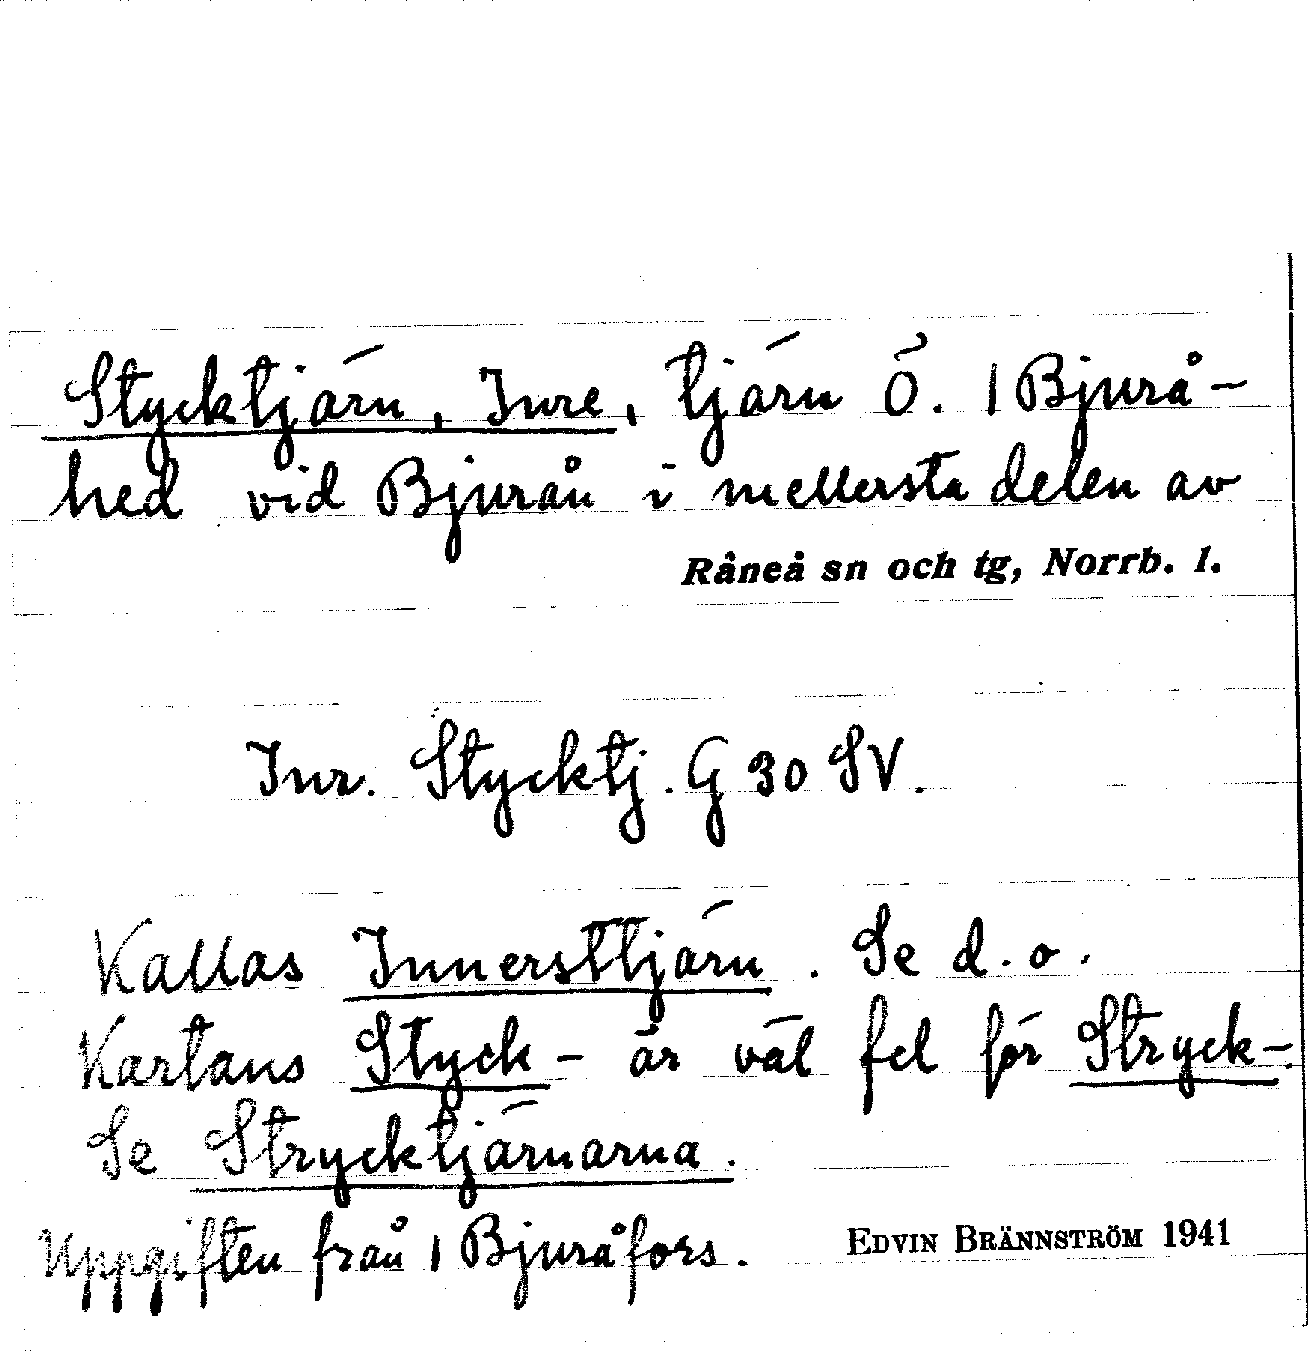 Stycktjärn, Inre, tjärn Ö. 1 Bjurå-
hed vid Bjurån i mellersta delen av
Råneå sn och tg, Norrb. l.
Inr. Stycktj. G 30 SV.
Kallas Innersttjärn. Se d.o.
Kartans Styck- är väl fel för Stryck-.
Se Strycktjärnarna.
Uppgiften från 1 Bjuråfors.
EDVIN BRÄNNSTRÖM 1941